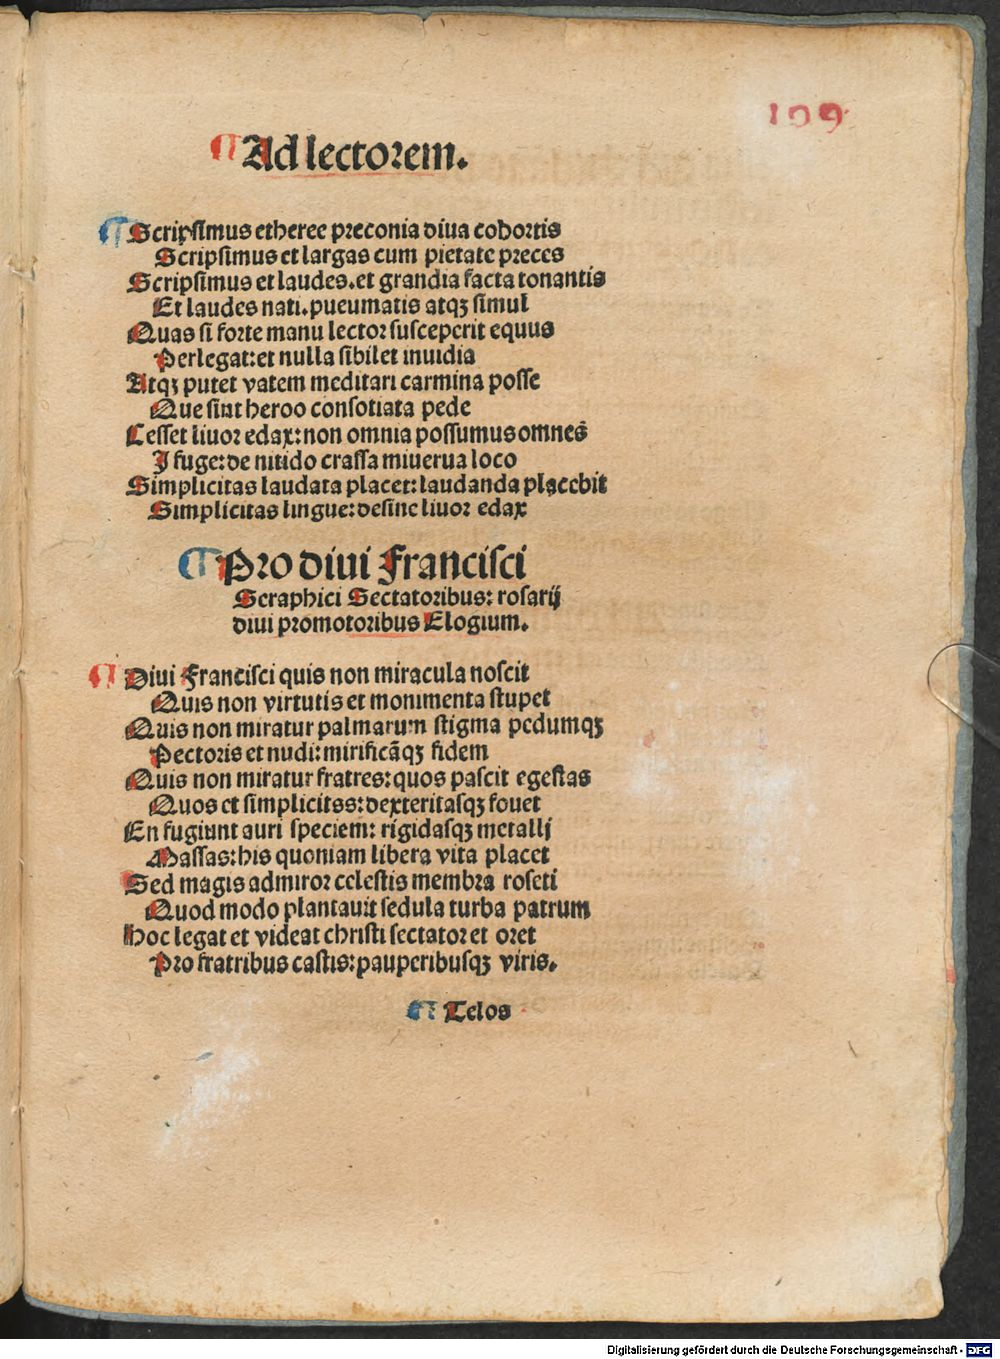 109
¶ Ad lectorem.
¶ Scripsimus etheree preconia diua cohortis
Scripsimus et largas cum pietate preces
Scripsimus et laudes.et grandia facta tonantis
Et laudes nati.pneumatis atqꝫ simul
Quas si forte manu lector susceperit equus
Perlegat:et nulla sibilet inuidia
Atqꝫ putet vatem meditari carmina posse
Que sint heroo consotiata pede
Cesset liuor edax:non omnia possumus omnes
I fuge:de nitido crassa minerua loco
Simplicitas laudata placet:laudanda placebit
Simplicitas lingue:desine liuor edax
¶ Pro diui Francisci
Seraphici Sectatoribus: rosarij
diui promotoribus Elogium.
¶ Diui Francisci quis non miracula noscit
Quis non virtutis et monimenta stupet
Quis non miratur palmarum stigma pedumqꝫ
Pectoris et nudi:mirificãqꝫ fidem
Quis non miratur fratres:quos pascit egestas
Quos et simplicitas:dexteritasqꝫ fouet
En fugiunt auri speciem: rigidasqꝫ metalli
Massas:his quoniam libera vita placet
Sed magis admiror celestis membra roseti
Quod modo plantauit sedula turba patrum
Hoc legat et videat christi sectator et oret
Pro fratribus castis:pauperibusqꝫ viris.
¶ Telos
Digitalisierung gefördert durch die Deutsche Forschungsgemeinschaft - DFG